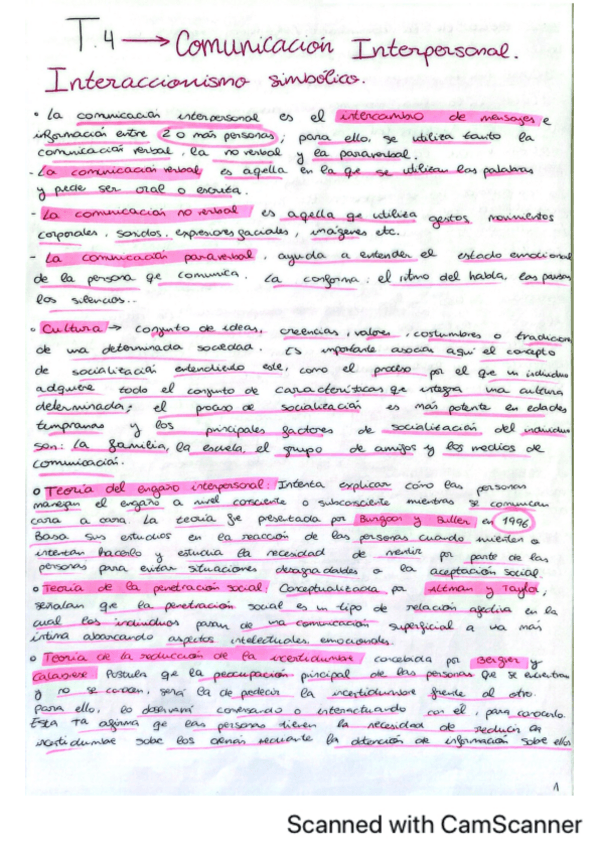 T.4 → Comunicación Interpersonal.
Interaccionismo simbólico.
• La comunicación interpersonal es el intercambio de mensajes e
información entre 2 o más personas; para ello, se utiliza tanto la
comunicación verbal, la no verbal y la paraverbal.
- La comunicación verbal es aqella en la qe se utilizan las palabras
y puede ser oral o escrita.
- La comunicación no verbal es aqella qe utiliza gestos, movimientos
corporales, sonidos, expresiones faciales, imágenes etc.
- La comunicación paraverbal, ayuda a entender el estado emocional
de la persona qe comunica. La conforma: el ritmo del habla, las pausas
los silencios...
• Cultura → conjunto de ideas, creencias, valores, costumbres o tradiciones
de una determinada sociedad. Es importante asociar aquí el concepto
de socialización entendiendo este, como el proceso por el qe un individuo
adquiere todo el conjunto de características qe integra una cultura
determinada; el proceso de socialización es más potente en edades
tempranas y los principales factores de socialización del individuo
son: la familia, la escuela, el grupo de amigos y los medios de
comunicación.
• Teoría del engaño interpersonal: Intenta explicar cómo las personas
manejan el engaño a nivel consciente o subconsciente mientras se comunican
cara a cara. La teoría fue presentada por Burgoon y Buller en 1996
Basa sus estudios en la reacción de las personas cuando mienten o
intentan hacerlo y estudia la necesidad de mentir por parte de las
personas para evitar situaciones desagradables o la aceptación social.
• Teoría de la penetración social: Conceptualizada por Altman y Taylor,
señalan qe la penetración social es un tipo de relación afectiva en la
cual los individuos pasan de una comunicación superficial a una más
íntima abarcando aspectos intelectuales, emocionales.
• Teoría de la reducción de la incertidumbre concebida por Berger y
Calabrese Postula qe la preocupación principal de las personas qe se encuentran
y no se conocen, será la de predecir la incertidumbre frente al otro.
Para ello, lo observará conversando o interactuando con él, para conocerlo.
Esta ta afirma qe las personas tienen la necesidad de reducir la
incertidumbre sobre los demás mediante la obtención de información sobre ellos
1
Scanned with CamScanner